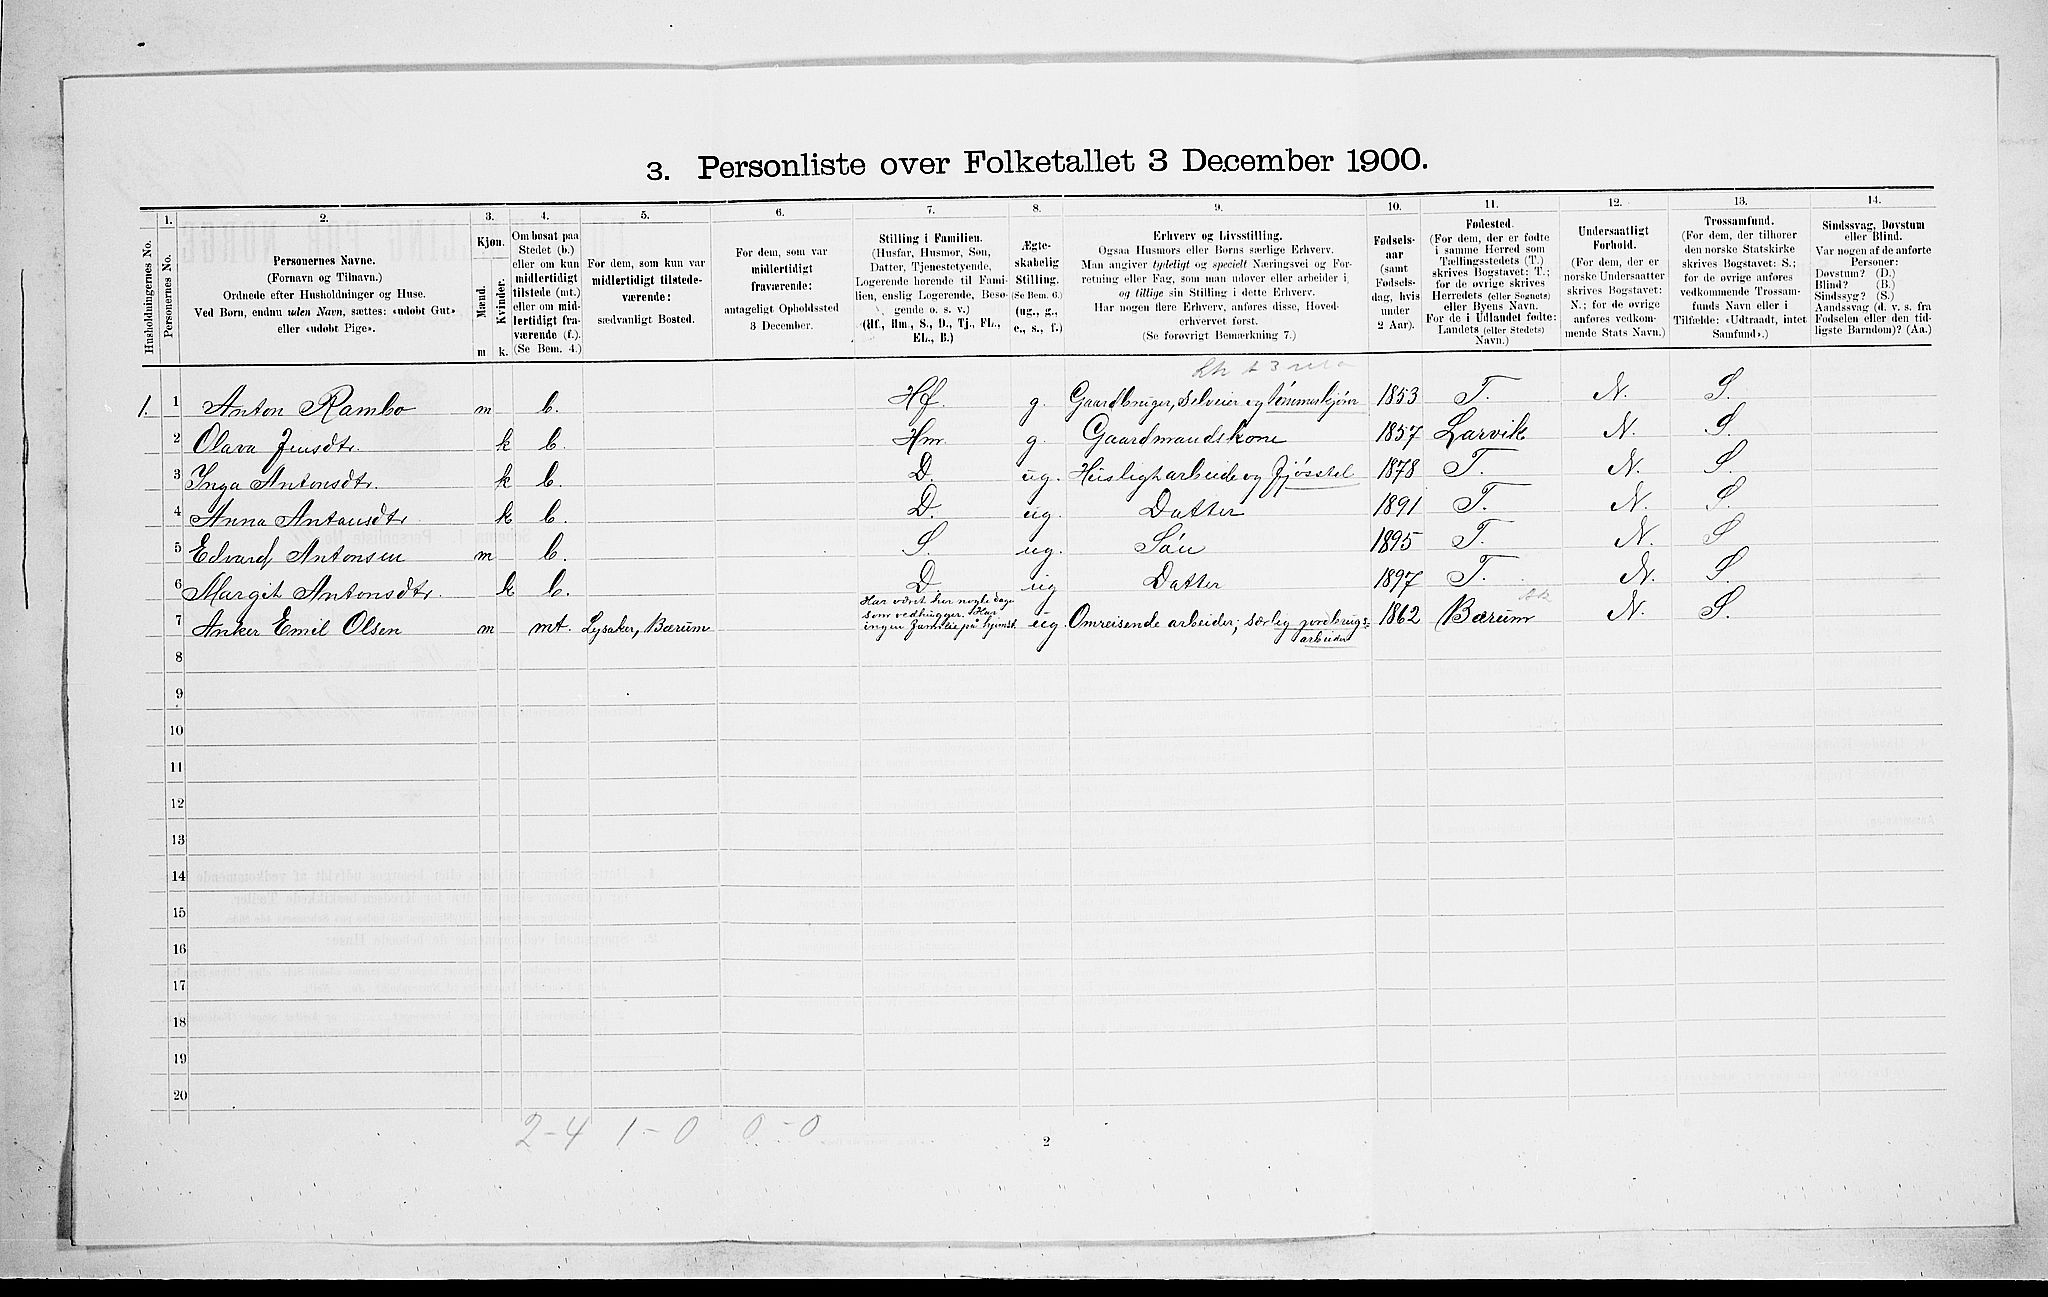 3. Personliste over Folketallet 3 December 1900.
1. 2. 3. 4. 5. 6. 7. 8. 9. 10. 11. 12. 13. 14.
Husholdningernes No.
Personernes No.
Personernes Navne.
(Fornavn og Tilnavn.)
Ordnede efter Husholdninger og Huse.
Ved Børn, endnu uden Navn, sættes: «udøbt Gut»
eller «udøbt Pige».
Kjøn.
Mænd.
Kvinder.
m k.
Om bosat paa
Stedet (b.)
eller om kun
midlertidigt
tilstede (mt.)
eller om mid-
lertidigt fra-
værende (f.)
(Se Bem. 4.)
For dem, som kun var
midlertidigt tilstede-
værende:
sædvanligt Bosted.
For dem, som var
midlertidigt
fraværende:
antageligt Opholdssted
3 December.
Stilling i Familien.
(Husfar, Husmor, Søn,
Datter, Tjenestetyende,
Logerende hørende til Fami-
lien, enslig Logerende, Besø-
gende o. s. v.)
(Hf., Hm., S., D., Tj., FL.,
EL., B.)
Ægte-
skabelig
Stilling.
(Se Bem. 6.)
(ug., g.,
e., s., f.)
Erhverv og Livsstilling.
Ogsaa Husmors eller Børns særlige Erhverv.
Man angiver tydeligt og specielt Næringsvei og For-
retning eller Fag, som man udøver eller arbeider i,
og tillige sin Stilling i dette Erhverv.
Har nogen flere Erhverv, anføres disse, Hoved-
erhvervet først.
(Se forøvrigt Bemærkning 7.)
Fødsels-
aar
(samt
Fødsels-
dag, hvis
under
2 Aar).
Fødested.
(For dem, der er fødte
i samme Herred som
Tællingsstedets (T.)
skrives Bogstavet: T.;
for de øvrige skrives
Herredets (eller Sognets)
eller Byens Navn.
For de i Udlandet fødte:
Landets (eller Stedets)
Navn.)
Undersaatligt
Forhold.
(For dem, der er
norske Undersaatter
skrives Bogstavet:
N.; for de øvrige
anføres vedkom-
mende Stats Navn.)
Trossamfund.
(For dem, der tilhører
den norske Statskirke
skrives Bogstavet: S.;
for de øvrige anføres
vedkommende Trossam-
funds Navn eller i
Tilfælde: «Udtraadt, intet
Samfund».)
Sindssvag, Døvstum
eller Blind.
Var nogen af de anførte
Personer:
Døvstum? (D.)
Blind? (B.)
Sindssyg? (S.)
Aandssvag (d. v. s. fra
Fødselen eller den tid-
ligste Barndom)? (Aa.)
1. 1 Anton Rambo m b. Hf. g. Gaardbruger, Selveier og tømmerkjører 1853 T. N. S.
2 Olava Jensdtr. k b. Hm g. Gaardmandskone 1857 Larvik N. S.
3 Inga Antonsdtr. k b. D. ug. Huslight arbeide og fjøsstel 1878 T. N. S.
4 Anna Antonsdtr. k b. D. ug. Datter 1891 T. N. S.
5 Edvard Antonsen m b. S. ug. Søn 1895 T. N. S
6 Margit Antonsdtr. k b. D ug Datter 1897 T. N. S.
7 Anker Emil Olsen m mt. Lysaker, Bærum Har været her nogle dage
som vedhugger. Har
ingen familie på hjemst. ug. Omreisende arbeider; særlig jordbrugs-
arbeider 1862 Bærum N. S.
8
9
10
11
12
13
14
15
16
17
18
19
20
2-4 1-0 0-0
2